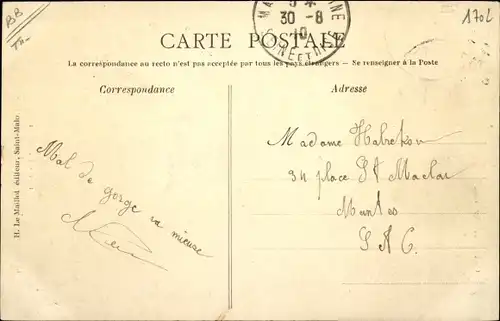 BB
170L
30-8
10
CARTE POSTALE
La correspondance au recto n'est pas acceptée par tous les pays étrangers — Se renseigner à la Poste
Correspondance
Adresse
H. Le Maillot éditeur, Saint-Malo
Mal de
gorge va mieux
Madame
34 place St Maclou
Mantes
S. & O.